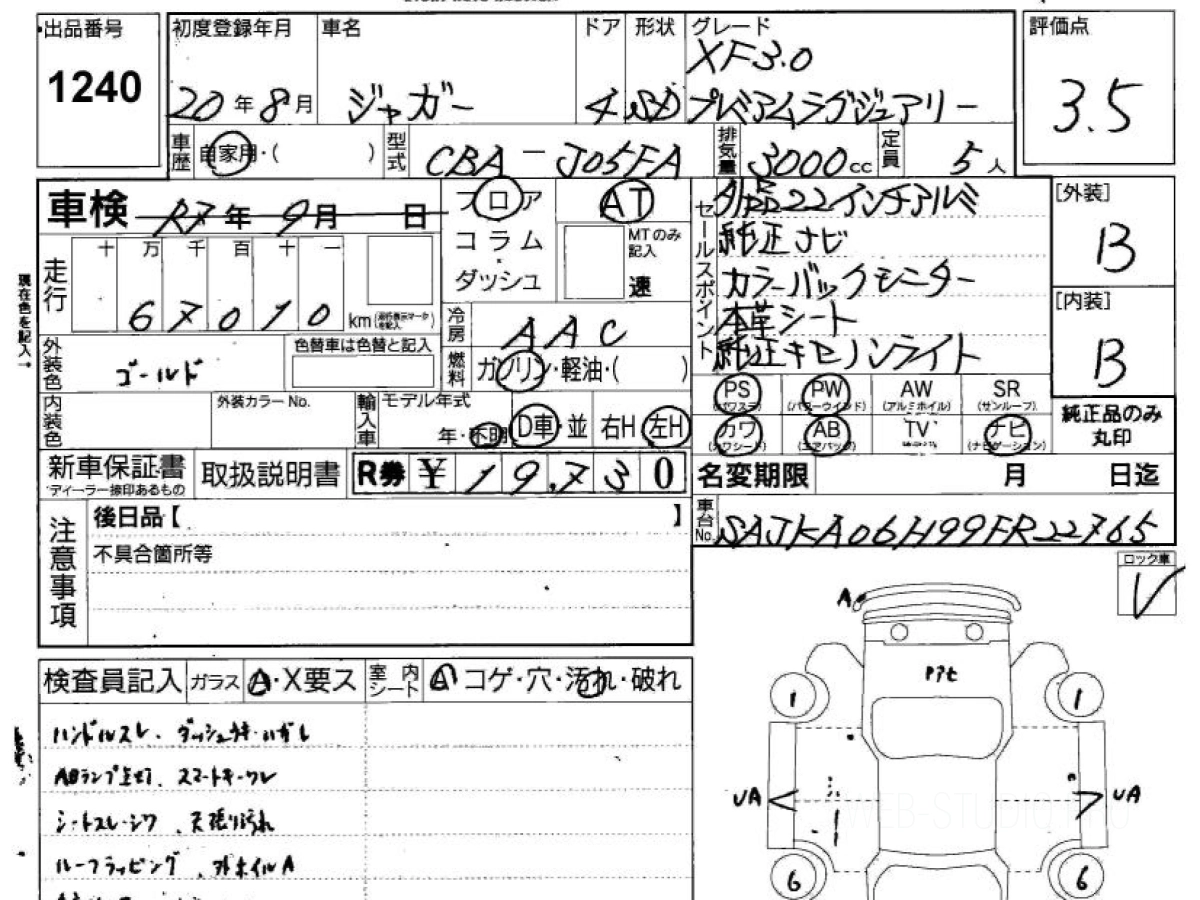 出品番号
1240
初度登録年月
20年8月
車名
ジャガー
ドア
4
形状
SD
グレード
XF3.0
プレミアムラグジュアリー
評価点
3.5
車歴
自家用・( )
型式
CBA-J05FA
排気量
3000cc
定員
5人
車検 R7年9月 日
フロア
コラム
ダッシュ
AT
MTのみ記入
速
セールスポイント
外品22インチアルミ
純正ナビ
カラーバックモニター
本革シート
純正キセノンライト
[外装]
B
[内装]
B
現在色を記入→
走行
十 万 千 百 十 一
6 7 0 1 0
km
冷房
AAC
外装色
ゴールド
色替車は色替と記入
燃料
ガソリン・軽油・( )
内装色
外装カラーNo.
輸入車
モデル年式
年・不明
D車・並
右H 左H
PS PW AW SR
(パワステ) (パワーウインド) (アルミホイル) (サンルーフ)
カワ AB TV ナビ
(カワシート) (エアバッグ) (ナビゲーション)
純正品のみ丸印
新車保証書
ディーラー捺印あるもの
取扱説明書
R券 ¥ 19,730
名変期限 月 日迄
注意事項
後日品【 】
不具合箇所等
車台No.
SAJKA06H99FR22765
ロック車
検査員記入
ガラス A・X要ス
室内シート
A コゲ・穴・汚れ・破れ
ハンドルスレ、ダッシュキ・ハガレ
ABランプ点灯、スマートキーワレ
シートスレ・シワ、天張り汚れ
ルーフラッピング、外ホイルA
A
P7t
1 1
UA UA
6 6
WEB-STUDIO.PRO